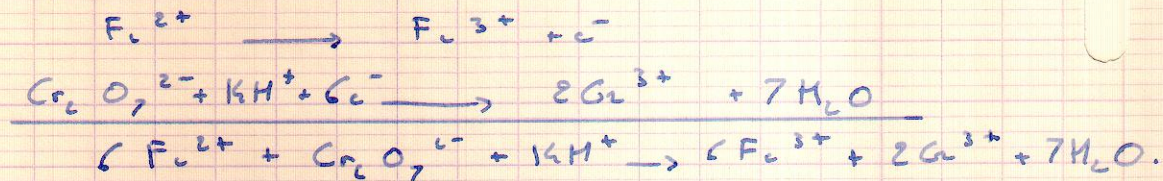 Fe²⁺ ⟶ Fe³⁺ + e⁻
Cr₂O₇²⁻ + 14H⁺ + 6e⁻ ⟶ 2Cr³⁺ + 7H₂O
6Fe²⁺ + Cr₂O₇²⁻ + 14H⁺ → 6Fe³⁺ + 2Cr³⁺ + 7H₂O.